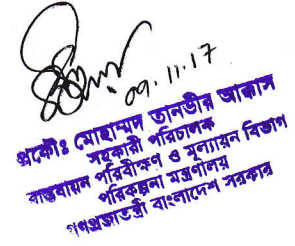 09.11.17
প্রকৌঃ মোহাম্মদ তানভীর আব্বাস
সহকারী পরিচালক
বাস্তবায়ন পরিবীক্ষণ ও মূল্যায়ন বিভাগ
পরিকল্পনা মন্ত্রণালয়
গণপ্রজাতন্ত্রী বাংলাদেশ সরকার